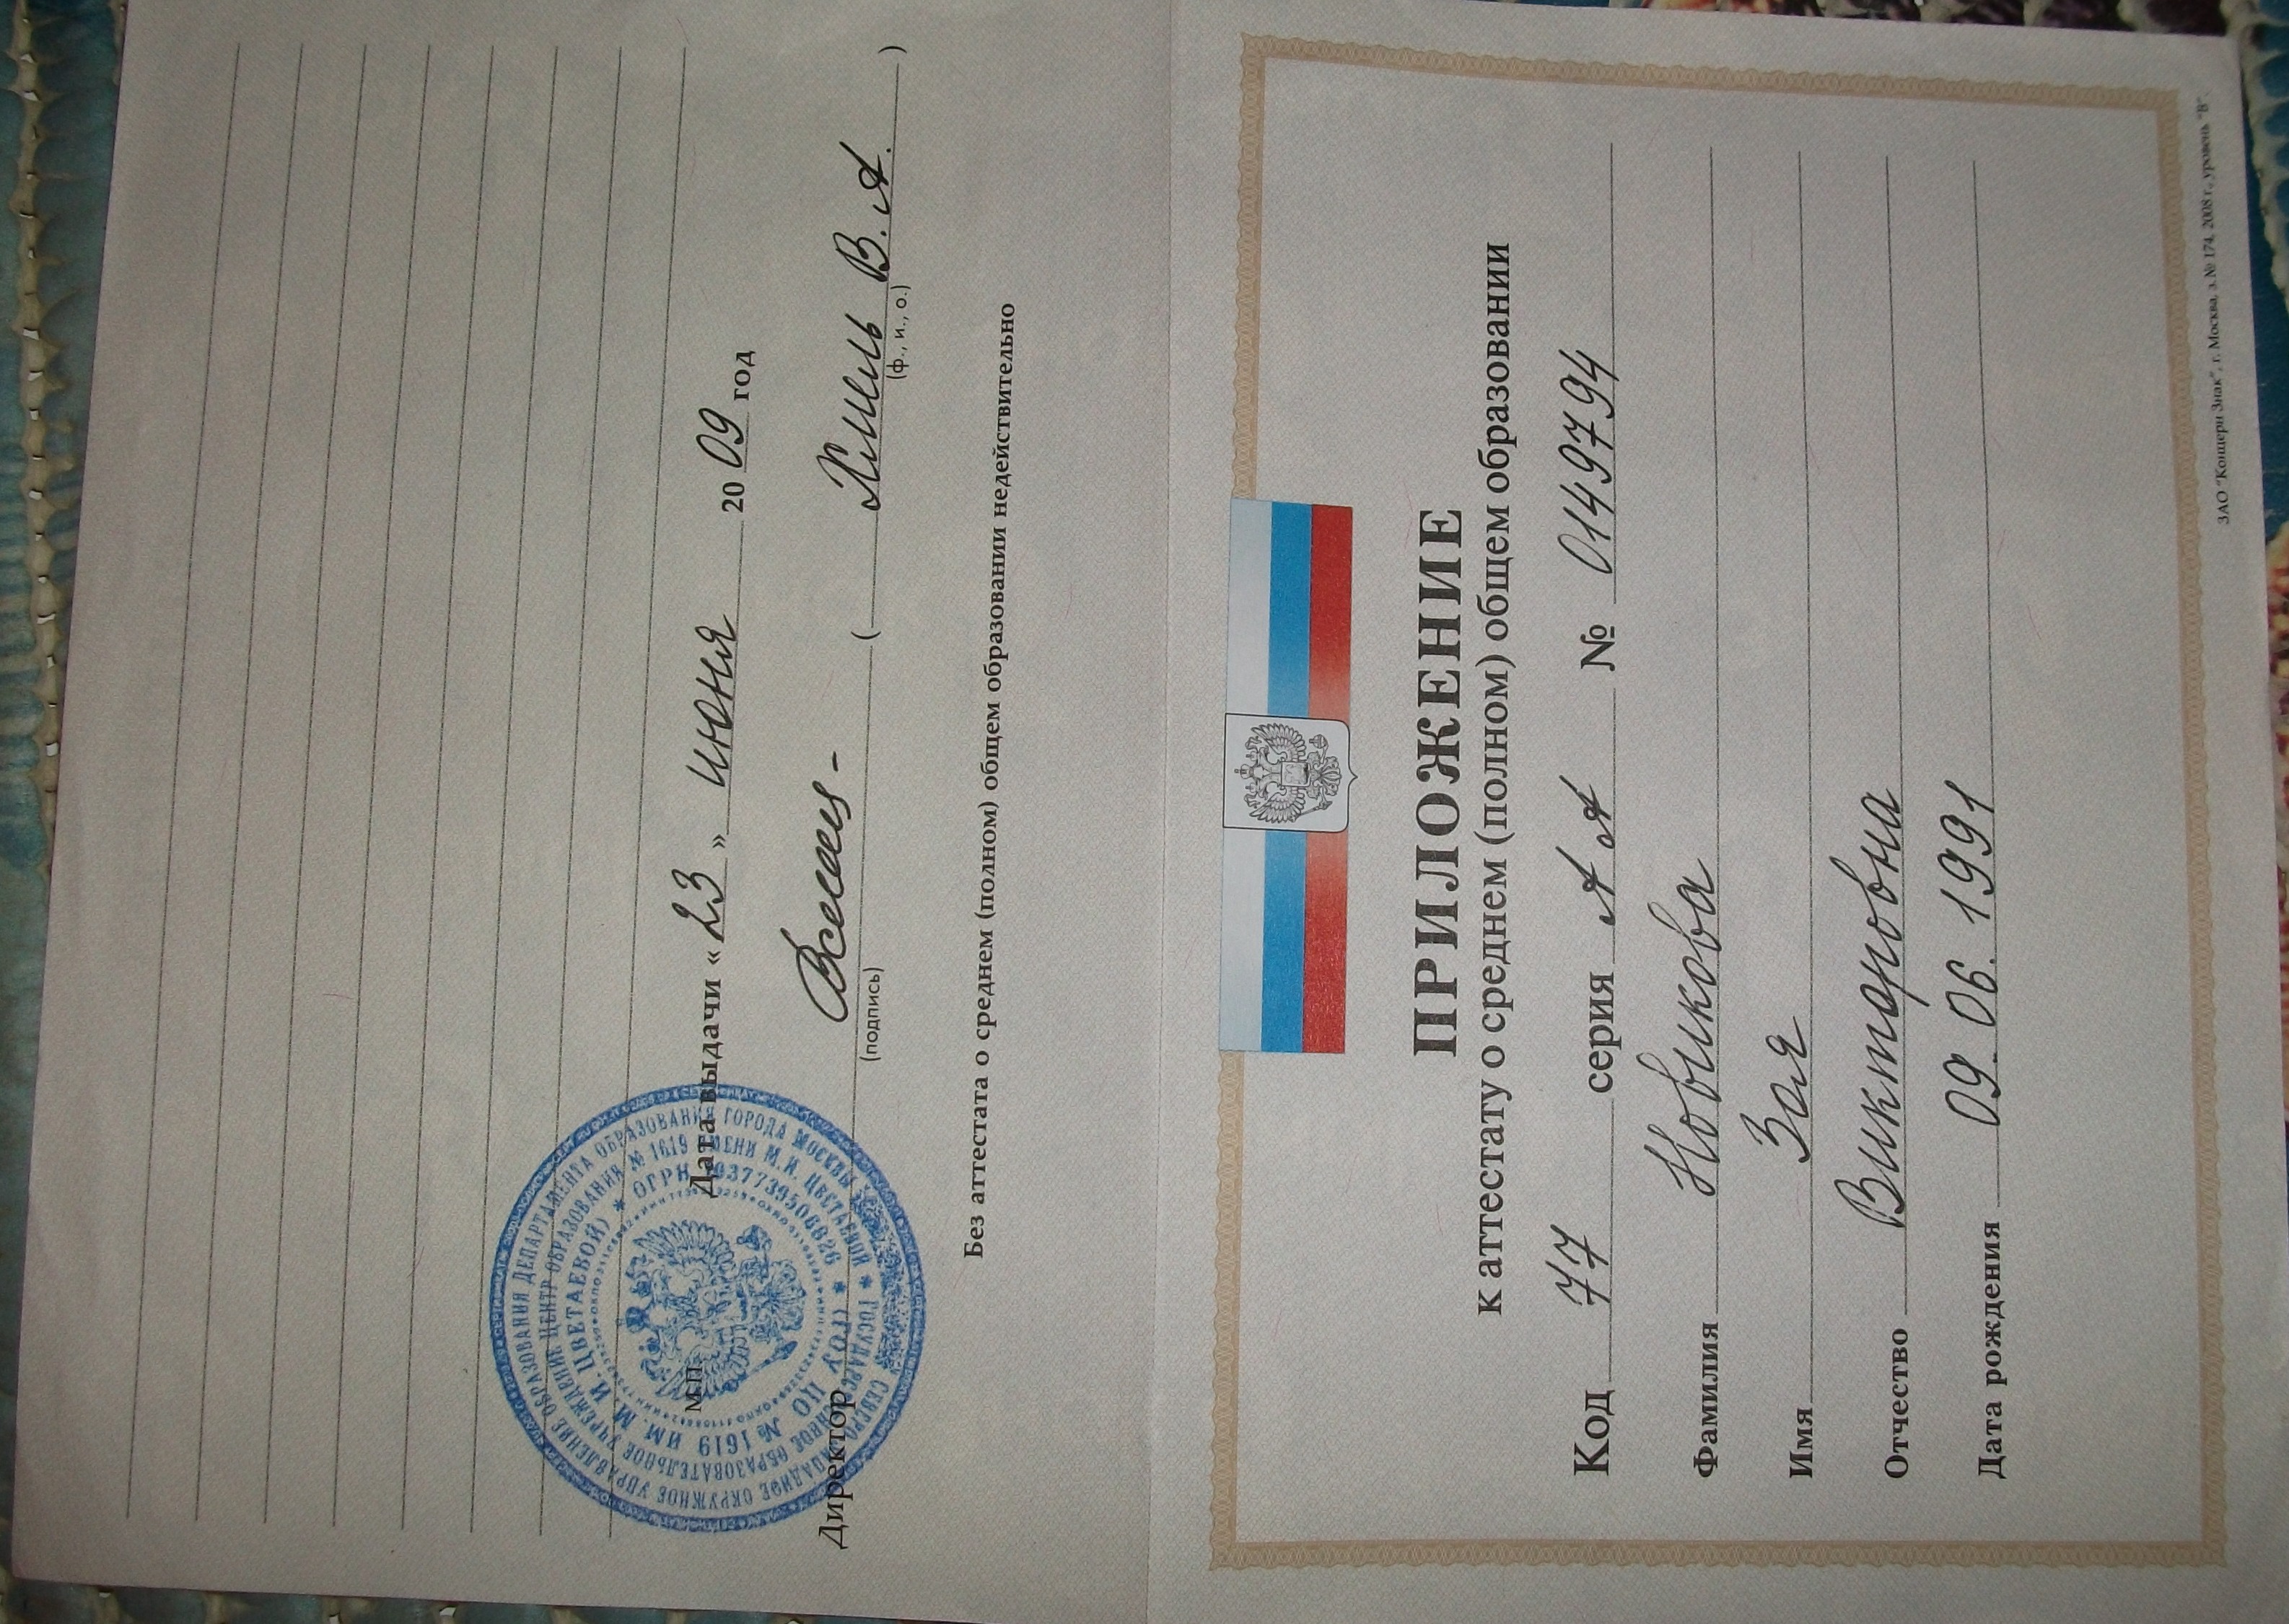 Дата выдачи « 23 » июня 20 09 год
М.П.
Директор ( Хмиль В. А. )
(подпись) (ф., и., о.)
Без аттестата о среднем (полном) общем образовании недействительно
СЕВЕРО-ЗАПАДНОЕ ОКРУЖНОЕ УПРАВЛЕНИЕ ОБРАЗОВАНИЯ ДЕПАРТАМЕНТА ОБРАЗОВАНИЯ ГОРОДА МОСКВЫ
* ГОСУДАРСТВЕННОЕ ОБРАЗОВАТЕЛЬНОЕ УЧРЕЖДЕНИЕ ЦЕНТР ОБРАЗОВАНИЯ № 1619 ИМЕНИ М.И. ЦВЕТАЕВОЙ
* (ГОУ ЦО № 1619 ИМ. М.И. ЦВЕТАЕВОЙ) * ОГРН 1037739506826
ПРИЛОЖЕНИЕ
к аттестату о среднем (полном) общем образовании
Код 77 серия А А № 0149794
Фамилия Новикова
Имя Зоя
Отчество Викторовна
Дата рождения 09. 06. 1991
ЗАО "Концерн Знак", г. Москва, з.№ 174, 2008 г., уровень "В".